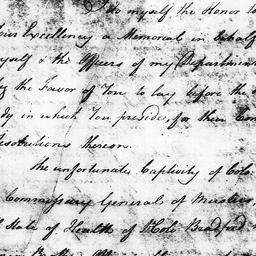 I do myself the Honor to
Your Excellency a Memorial in behalf
myself & the Officers of my Department
the Favor of You to lay before the
in which You preside, for their
Resolutions thereon.
The unfortunate Captivity of Colo.
Commissary General of Musters,
State of Health of Colo. Bradford